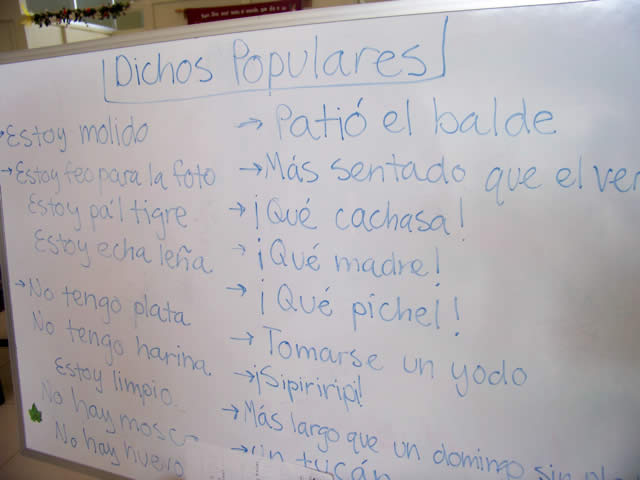 Dichos Populares
Estoy molido
Estoy feo para la foto
Estoy pa'l tigre
Estoy echa leña
No tengo plata
No tengo harina
Estoy limpio
No hay mosc
No hay huevo
Patió el balde
Más sentado que el ver
¡Qué cachasa!
¡Qué madre!
¡Qué pichel!
Tomarse un yodo
¡Sipiriripi!
Más largo que un domingo sin pla
Un tucán